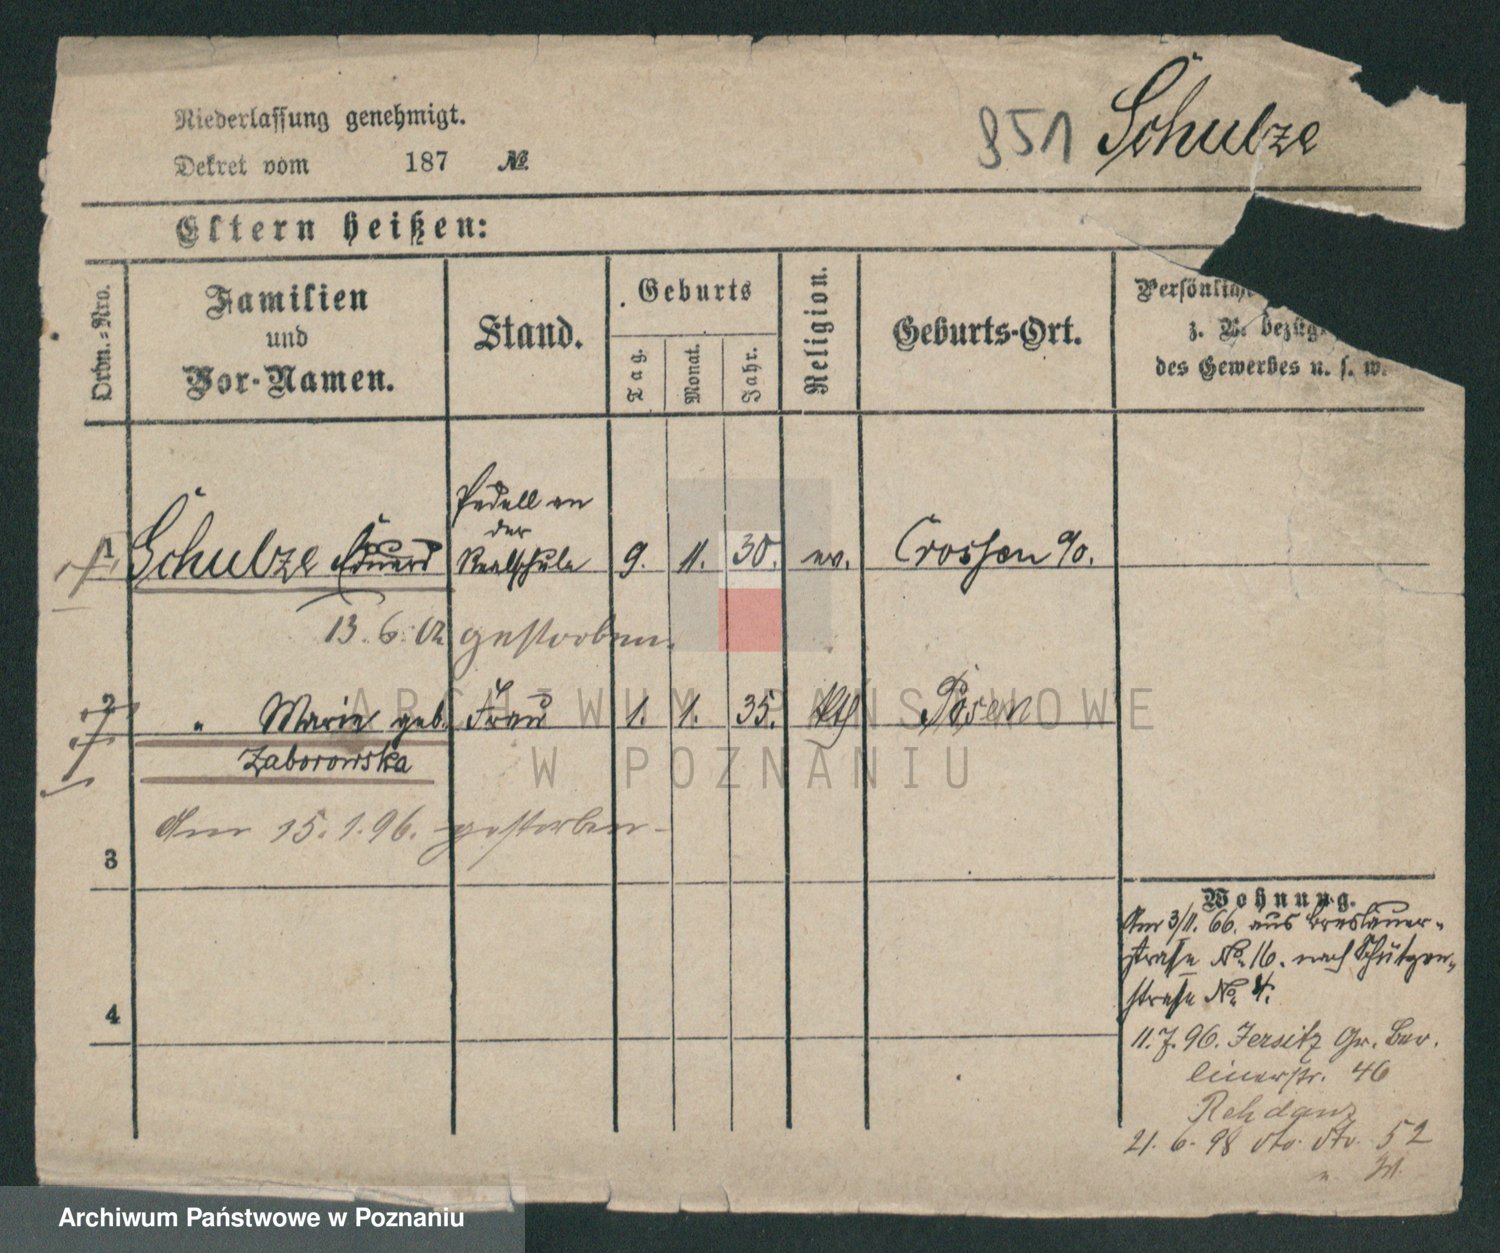 Niederlassung genehmigt.
Dekret vom 187 №
851 Schulze
Eltern heißen:
Ordn.-Nro.
Familien
und
Vor-Namen.
Stand.
Geburts
Tag.
Monat.
Jahr.
Religion.
Geburts-Ort.
Persönliche
z. B. bezügl
des Gewerbes u. s. w.
1 Schulze Eduard
Pedell an
der
Realschule
9. 11. 30. ev. Crossen a/O.
13. 6. 02 gestorben.
2 " Marie geb. Frau 1. 1. 35. kth Posen
Zaborowska
Am 15. 1. 96. gestorben
3
4
Wohnung.
Am 3/11. 66. aus Breslauer-
straße No. 16. nach Schützen-
straße No. 4.
11. 7. 96. Jersitz Gr. Ber.
linerstr. 46
Rehdanz
21. 6. 98 dto. dto. 52
ARCHIWUM PAŃSTWOWE
W POZNANIU
Archiwum Państwowe w Poznaniu